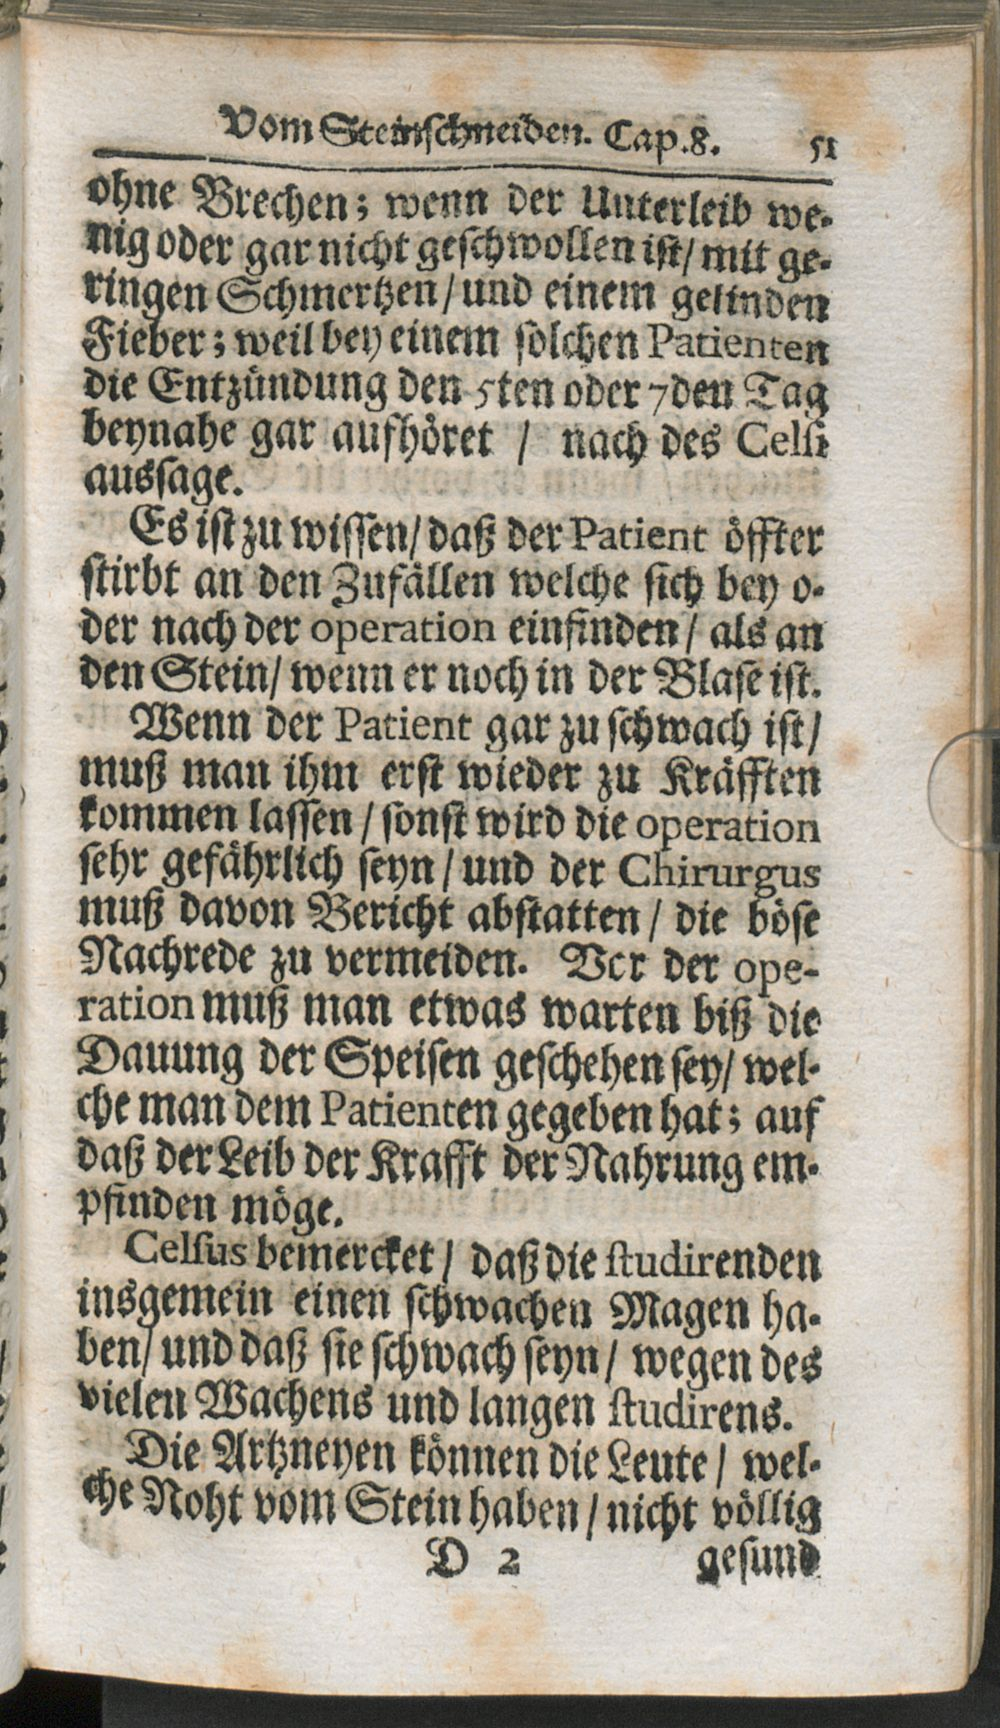 Vom Steinschneiden. Cap. 8. 51
ohne Brechen; wenn der Unterleib we-
nig oder gar nicht geschwollen ist/ mit ge-
ringen Schmertzen/ und einem gelinden
Fieber; weil bey einem solchen Patienten
die Entzündung den 5ten oder 7den Tag
beynahe gar aufhöret / nach des Celsi
aussage.
Es ist zu wissen/ daß der Patient öffter
stirbt an den Zufällen welche sich bey o-
der nach der operation einfinden/ als an
den Stein/ wenn er noch in der Blase ist.
Wenn der Patient gar zu schwach ist/
muß man ihm erst wieder zu Kräfften
kommen lassen / sonst wird die operation
sehr gefährlich seyn / und der Chirurgus
muß davon Bericht abstatten / die böse
Nachrede zu vermeiden. Vor der ope-
ration muß man etwas warten biß die
Dauung der Speisen geschehen sey/ wel-
che man dem Patienten gegeben hat; auf
daß der Leib der Krafft der Nahrung em-
pfinden möge.
Celsus bemercket / daß die studirenden
insgemein einen schwachen Magen ha-
ben/ und daß sie schwach seyn/ wegen des
vielen Wachens und langen studirens.
Die Artzneyen können die Leute / wel-
che Noht vom Stein haben / nicht völlig
D 2 gesund